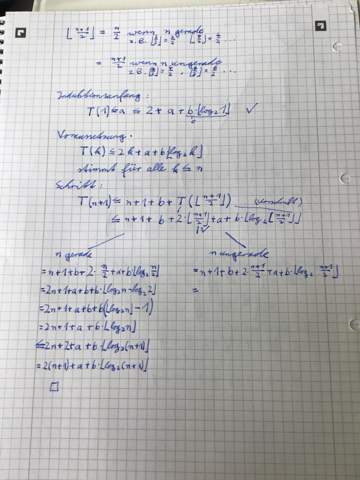 ⌊(n+1)/2⌋ = n/2 wenn n gerade
z.B.
= (n+1)/2 wenn n ungerade
z.B.
Induktionsanfang:
T(1) ≤ a ≤ 2 + a + b·⌊log₂1⌋ ✓
Voraussetzung:
T(k) ≤ 2k + a + b⌊log₂k⌋
stimmt für alle k ≤ n
Schritt:
T(n+1) ≤ n+1 + b + T(⌊(n+1)/2⌋)
≤ n+1 + b + 2·⌊(n+1)/2⌋ + a + b·⌊log₂⌊(n+1)/2⌋⌋
n gerade
= n+1+b+2·n/2+a+b⌊log₂ n/2⌋
= 2n+1+a+b+b·⌊log₂n-log₂2⌋
= 2n+1+a+b+b(⌊log₂n⌋-1)
= 2n+1+a+b·⌊log₂n⌋
≤ 2n+2+a+b·⌊log₂(n+1)⌋
= 2(n+1)+a+b·⌊log₂(n+1)⌋
□
n ungerade
= n+1+b+2·(n+1)/2+a+b·⌊log₂ (n+1)/2⌋
=